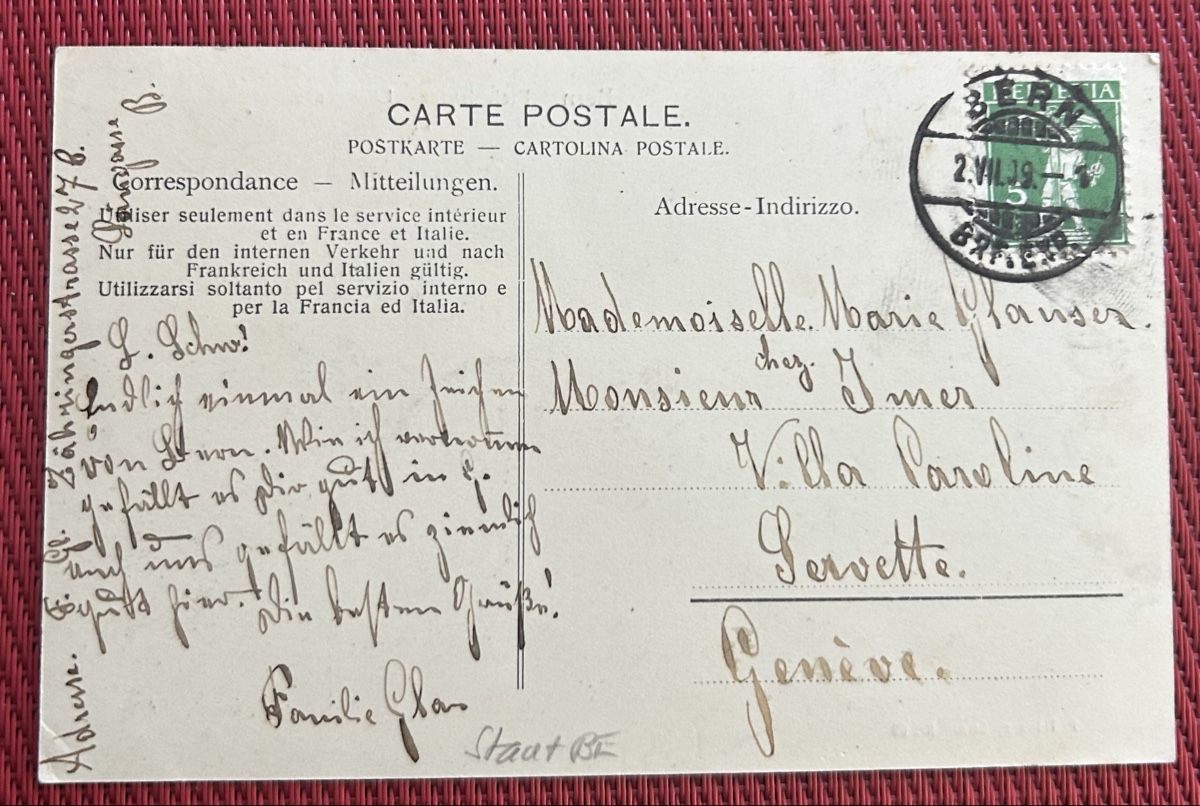 CARTE POSTALE.
POSTKARTE — CARTOLINA POSTALE.
Correspondance — Mitteilungen.
Utiliser seulement dans le service intérieur
et en France et Italie.
Nur für den internen Verkehr und nach
Frankreich und Italien gültig.
Utilizzarsi soltanto pel servizio interno e
per la Francia ed Italia.
L. Schw!
Endlich einmal ein Zeichen
von Bern. Wie ich vernommen
gefällt es Dir gut in G.
auch uns gefällt es ziemlich
gut hier. Die besten Grüße!
Familie Glas
Adresse. Zähringerstrasse 27 B.
Adresse-Indirizzo.
HELVETIA
5
BERN
2.VII.09.
BRF. EXP.
Mademoiselle. Marie Glauser.
chez.
Monsieur Imer
Villa Caroline
Servette.
Genève.
Staat BE